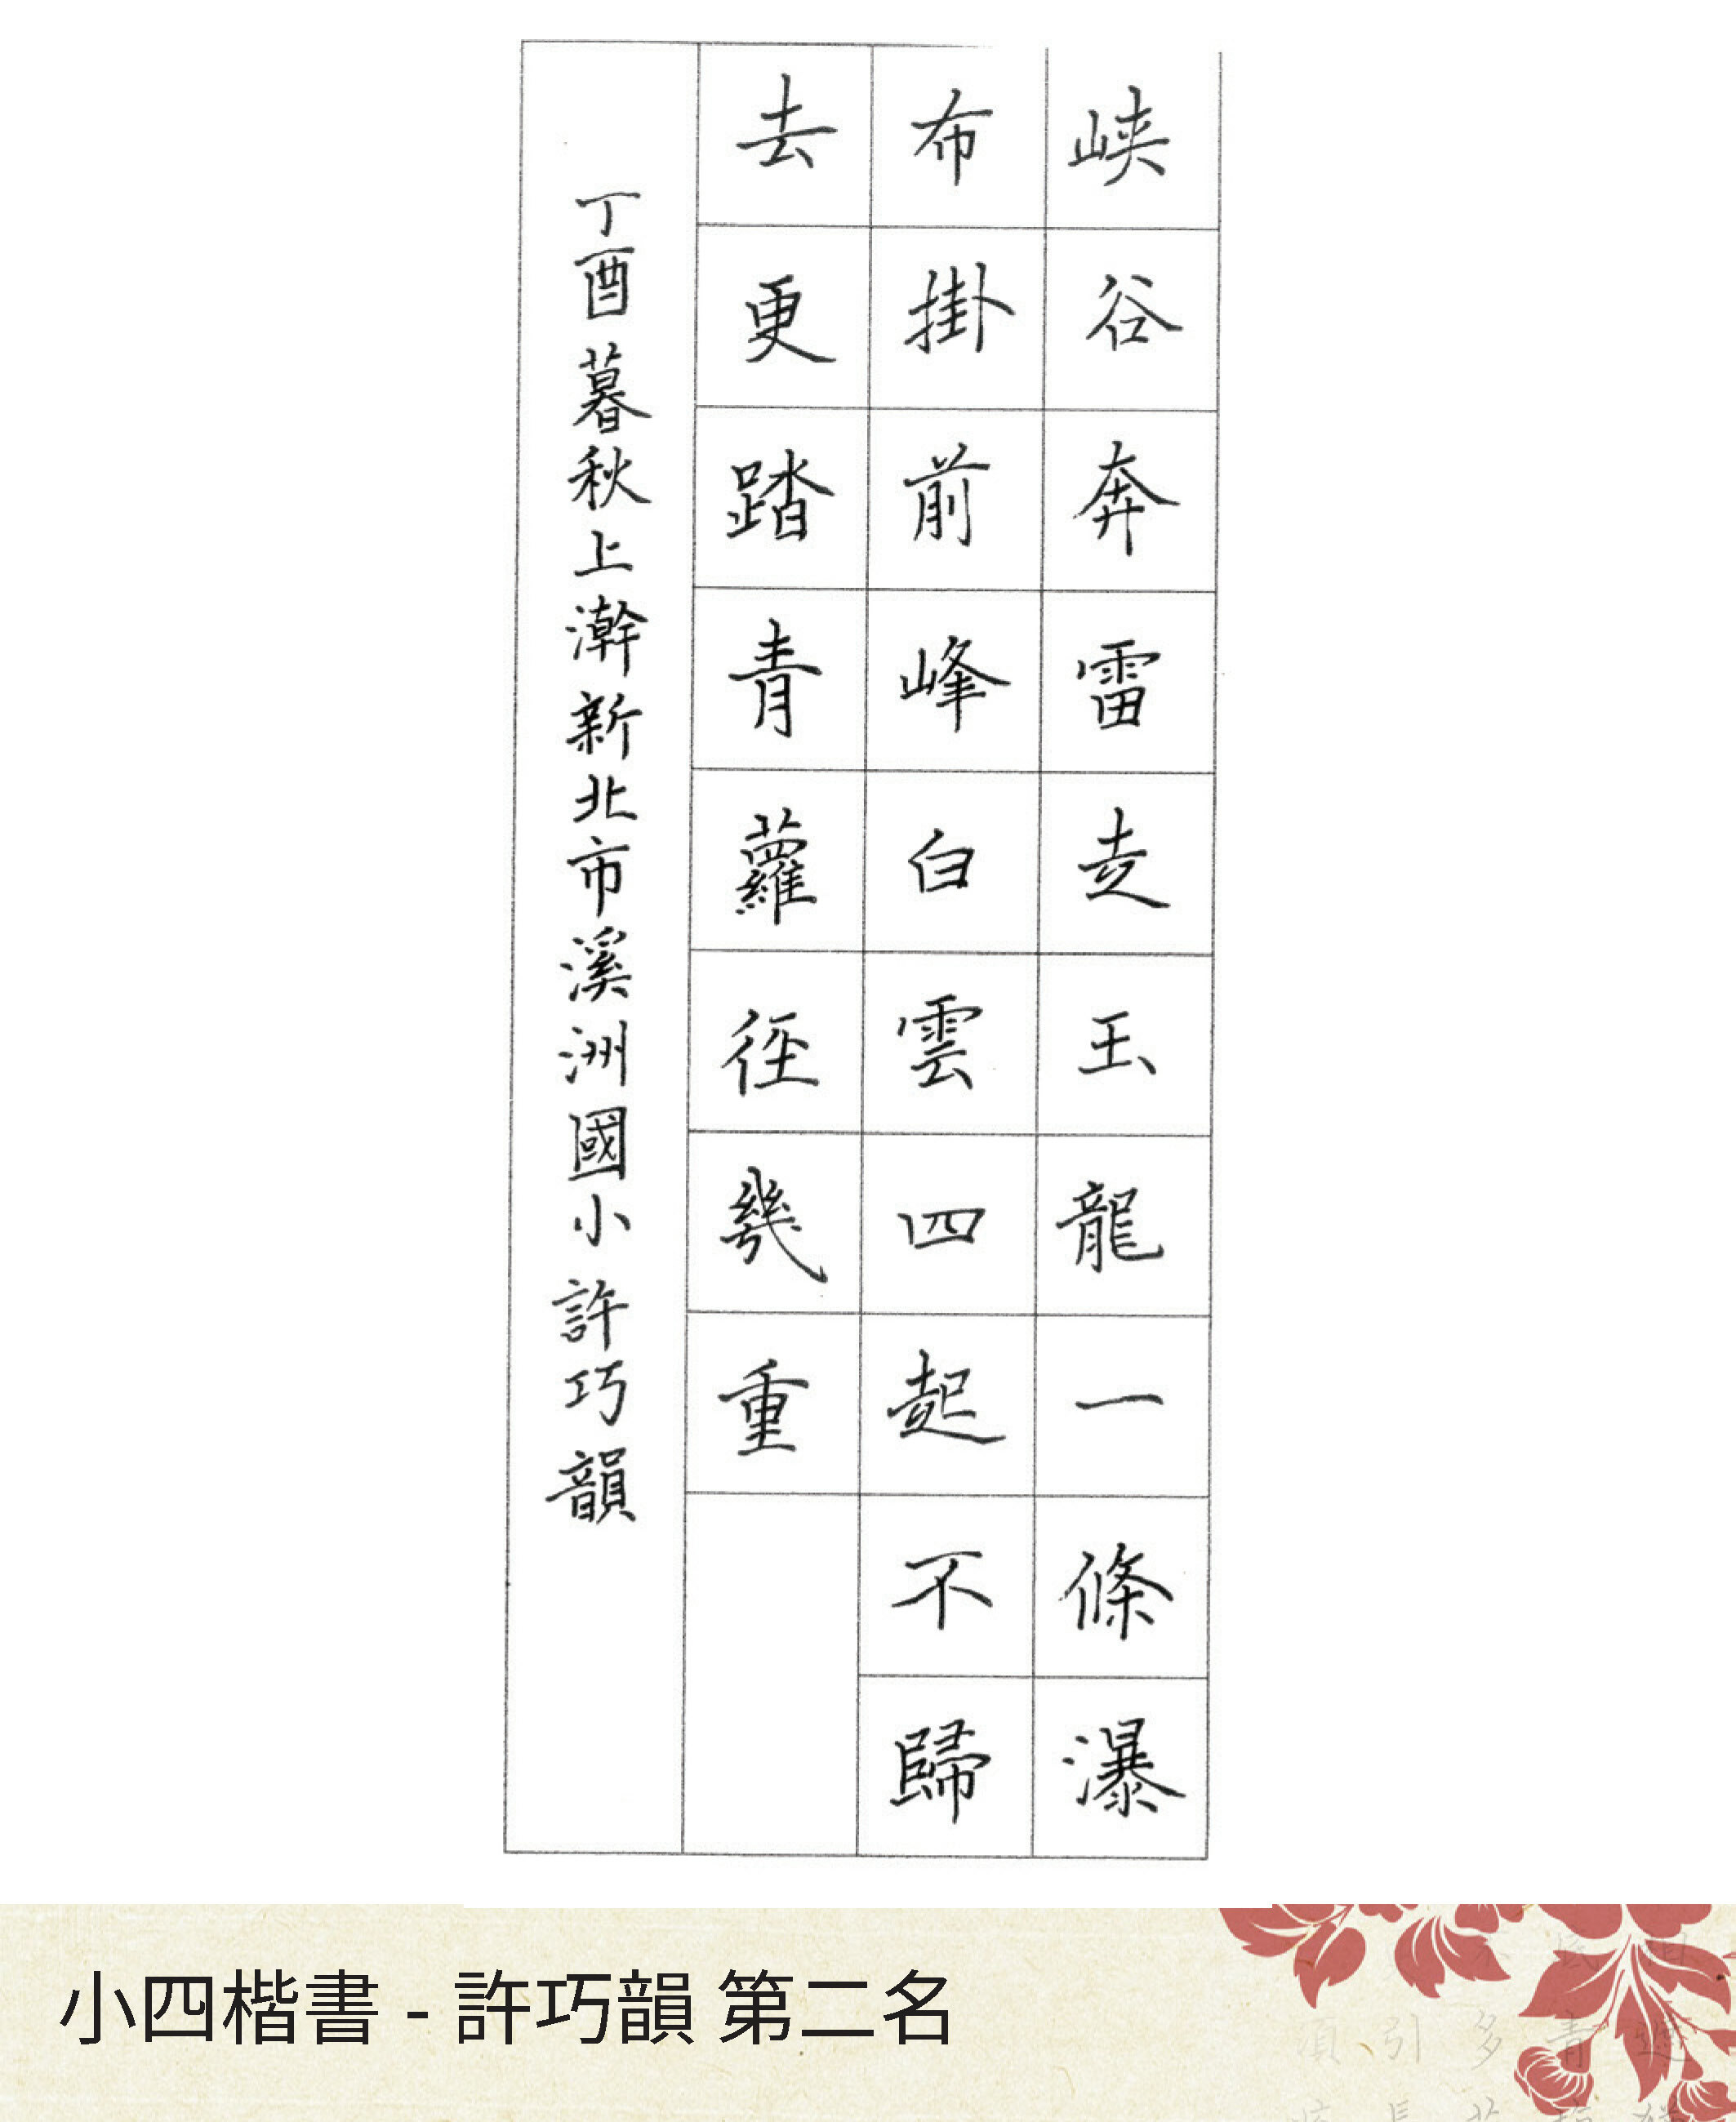 峽谷奔雷走玉龍一條瀑
布掛前峰白雲四起不歸
去更踏青蘿徑幾重
丁酉暮秋上澣新北市溪洲國小許巧韻
小四楷書 - 許巧韻 第二名